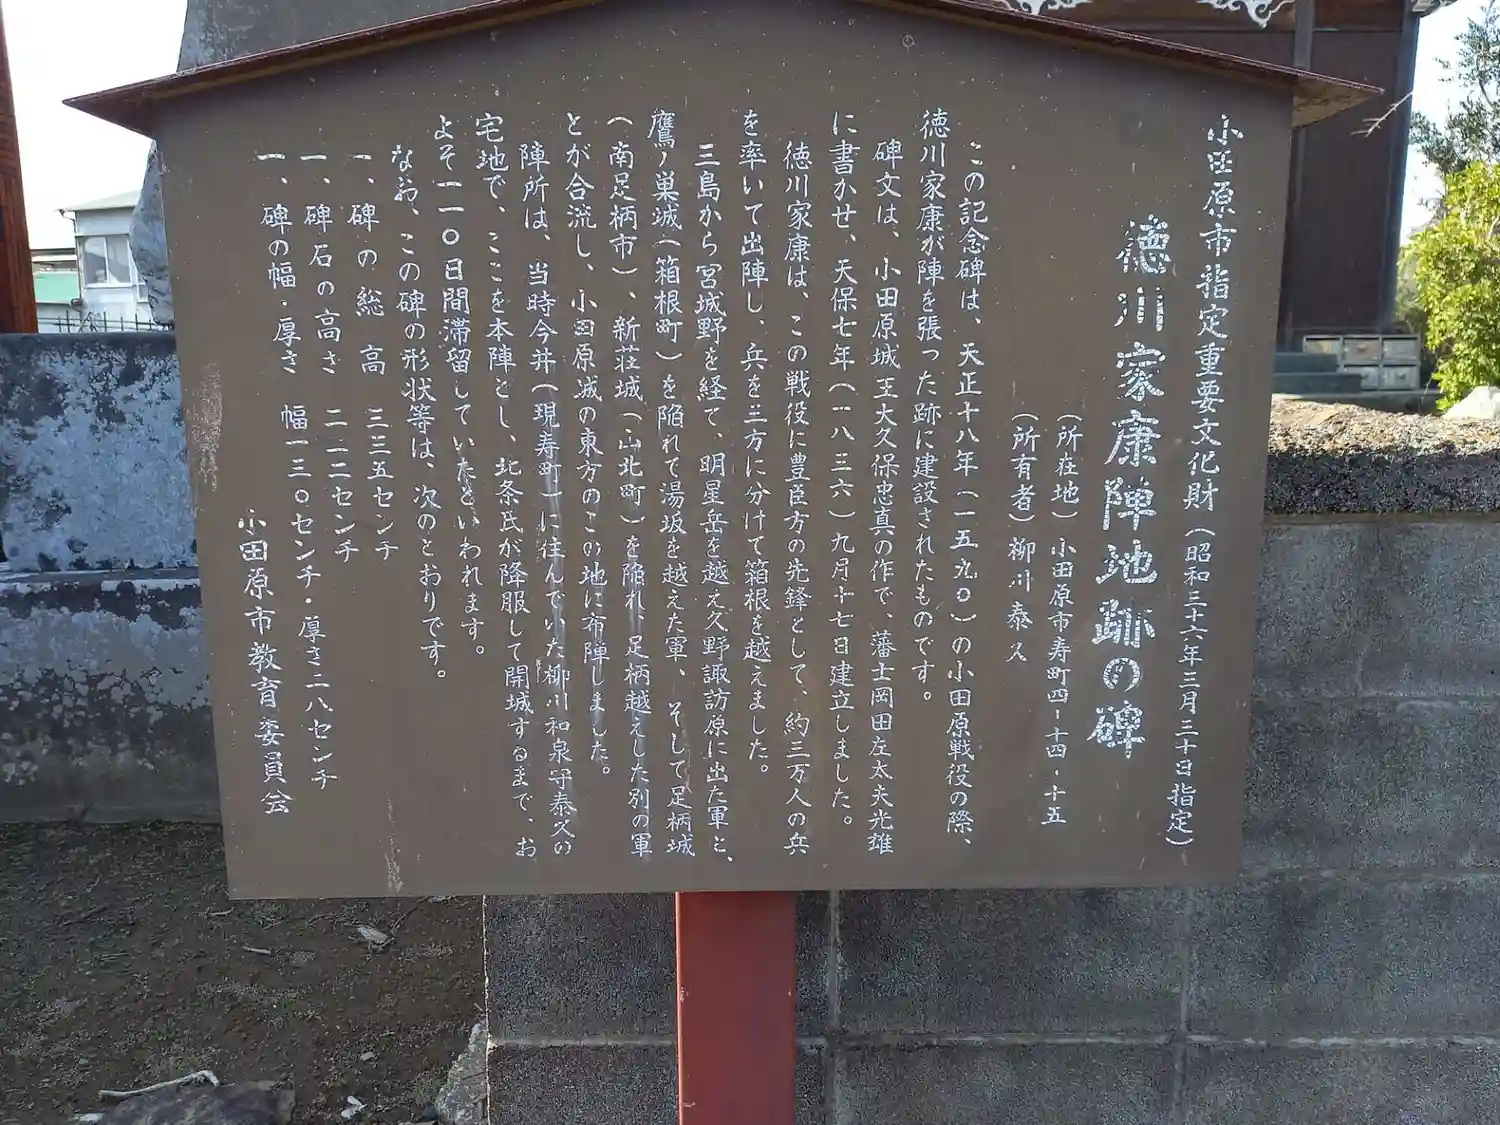 小田原市指定重要文化財（昭和三十六年三月三十日指定）
徳川家康陣地跡の碑
（所在地）小田原市寿町四ー十四・十五
（所有者）柳川泰久
この記念碑は、天正十八年（一五九〇）の小田原戦役の際、
徳川家康が陣を張った跡に建設されたものです。
碑文は、小田原城主大久保忠真の作で、藩士岡田左太夫光雄
に書かせ、天保七年（一八三六）九月十七日建立しました。
徳川家康は、この戦役に豊臣方の先鋒として、約三万人の兵
を率いて出陣し、兵を三方に分けて箱根を越えました。
三島から宮城野を経て、明星岳を越え久野諏訪原に出た軍と、
鷹ノ巣城（箱根町）を陥れて湯坂を越えた軍、そして足柄城
（南足柄市）、新荘城（山北町）を陥れ、足柄越えした別の軍
とが合流し、小田原城の東方のこの地に布陣しました。
陣所は、当時今井（現寿町）に住んでいた柳川和泉守泰久の
宅地で、ここを本陣とし、北条氏が降服して開城するまで、お
よそ一一〇日間滞留していたといわれます。
なお、この碑の形状等は、次のとおりです。
一、碑の総高 三三五センチ
一、碑石の高さ 二一二センチ
一、碑の幅・厚さ 幅一三〇センチ・厚さ二八センチ
小田原市教育委員会